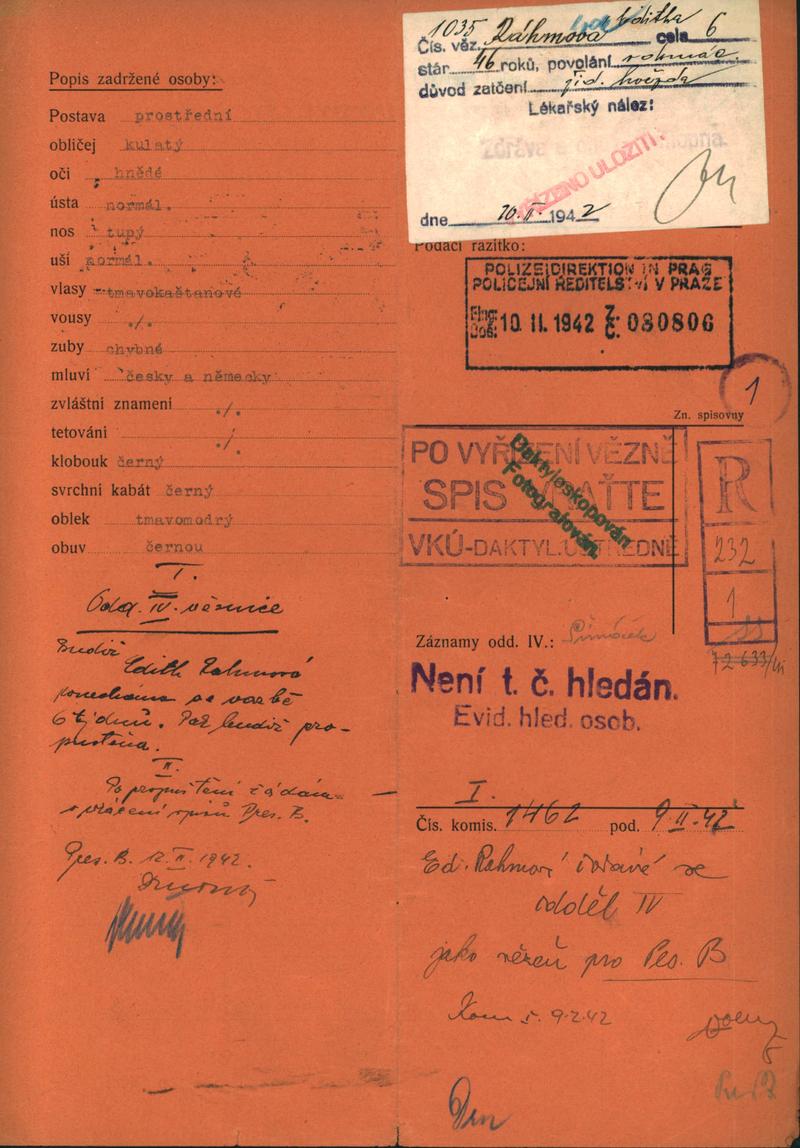 Popis zadržené osoby:
Postava prostřední
obličej kulatý
oči hnědé
ústa normál.
nos tupý
uší normál.
vlasy tmavokaštanové
vousy ./.
zuby chybné
mluví česky a německy
zvláštní znamení ./.
tetování ./.
klobouk černý
svrchní kabát černý
oblek tmavomodrý
obuv černou
I.
Odd. IV. věznice
Budiž
Edith Rahmová
ponechána ve vazbě
6 týdnů. Pak budiž pro-
puštěna.
II.
Po propuštění žádám
o vrácení spisů Pres. B.
Pres. B. 12. II. 1942.
1035 Ráhmová Editha
Čís. věz. cela 6
stár 46 roků, povolání
důvod zatčení žid. hvězda
Lékařský nález:
Zdráva a schopna.
ULOŽITI!
dne 10. II. 1942
Podací razítko:
POLIZEIDIREKTION IN PRAG
POLICEJNÍ ŘEDITELSTVÍ V PRAZE
Eing. Došl. 10. II. 1942 Z. Č. 080806
1
Zn. spisovny
PO VYŘÍZENÍ VĚZNĚ
SPIS VRAŤTE
VKÚ-DAKTYL. ÚSTŘEDNĚ
Daktyloskopován
Fotografován.
R
232
1
72633/
Záznamy odd. IV.:
Není t. č. hledán.
Evid. hled. osob.
I.
Čís. komis. 1462 pod. 9. II. 42
Ed. Rahmová se
odděl IV
jako vězeň pro Pres. B
Kom I. 9.2.42